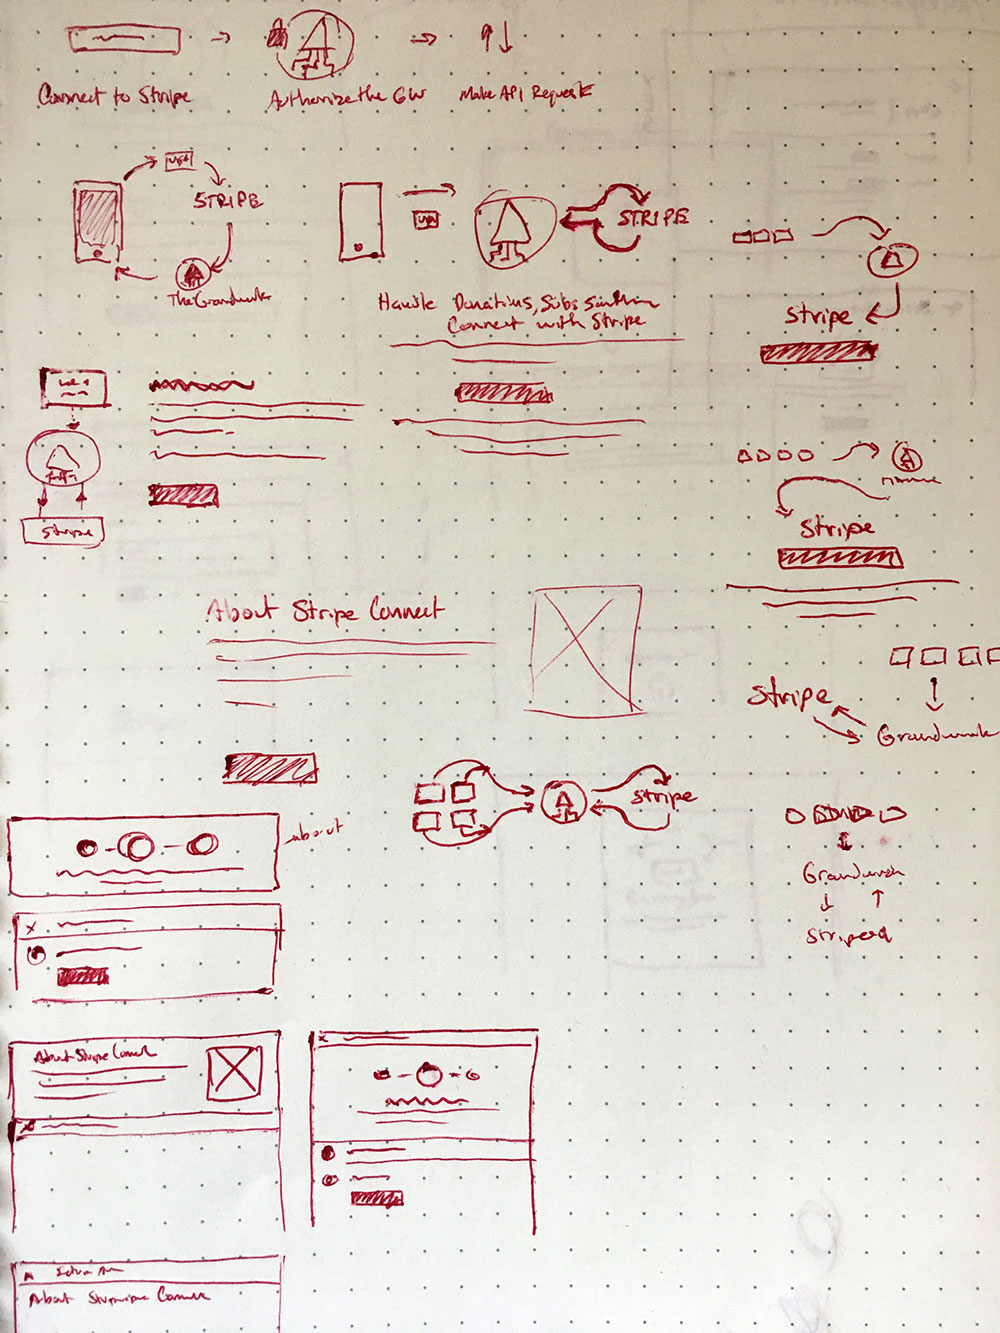 Connect to Stripe
Authorize the GW
Make API Request
STRIPE
TheGroundwork
STRIPE
Donations, Subs
Connect with Stripe
Stripe
Stripe
Stripe
About Stripe Connect
Stripe
Groundwork
Stripe
about
Groundwork
Stripe
About Stripe Connect
About Connect